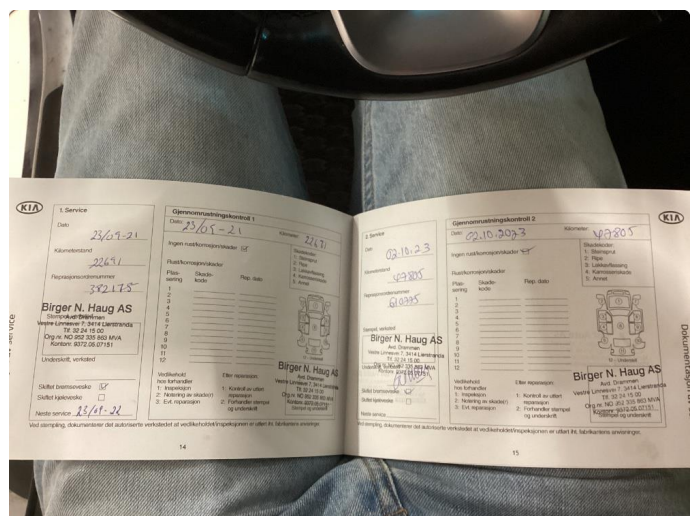 KIA
1. Service
Dato
23/09-21
Kilometerstand
22631
Reprasjonsordrenummer
382175
Birger N. Haug AS
Avd. Drammen
Vestre Linnesvei 7, 3414 Lierstranda
Tlf. 32 24 15 00
Org nr. NO 952 335 863 MVA
Kontonr. 9372.05.07151
Underskrift, verksted
Skiftet bremsevæske
Skiftet kjølevæske
Neste service 23/09-22
Gjennomrustningskontroll 1
Dato: 23/09-21
Kilometer: 22631
Ingen rust/korrosjon/skader
Rust/korrosjon/skader
Plassering
Skadekode
Rep. dato
1
2
3
4
5
6
7
8
9
10
11
12
Skadekoder:
1: Steinsprut
2: Ripe
3: Lakkavflassing
4: Karosseriskade
5: Annet
Vedlikehold
hos forhandler
1: Inspeksjon
2: Notering av skade(r)
3: Evt. reparasjon
Etter reparasjon
1: Kontroll av utført reparasjon
2: Forhandler stempel og underskrift
Birger N. Haug AS
Avd. Drammen
Vestre Linnesvei 7, 3414 Lierstranda
Tlf. 32 24 15 00
Org nr. NO 952 335 863 MVA
Kontonr. 9372.05.07151
Ved stempling, dokumenterer det autoriserte verkstedet at vedlikeholdet/inspeksjonen er utført iht. fabrikantens anvisninger.
14
2. Service
Dato
02.10.23
Kilometerstand
47805
Reprasjonsordrenummer
610735
Stempel, verksted
Birger N. Haug AS
Avd. Drammen
Vestre Linnesvei 7, 3414 Lierstranda
Tlf. 32 24 15 00
Org nr. NO 952 335 863 MVA
Skiftet bremsevæske
Skiftet kjølevæske
Neste service
Gjennomrustningskontroll 2
Dato: 02.10.2023
Kilometer: 47805
Ingen rust/korrosjon/skader
Rust/korrosjon/skader
Plassering
Skadekode
Rep. dato
1
2
3
4
5
6
7
8
9
10
11
12
Skadekoder:
1: Steinsprut
2: Ripe
3: Lakkavflassing
4: Karosseriskade
5: Annet
12 - Underside
Vedlikehold
hos forhandler
1: Inspeksjon
2: Notering av skade(r)
3: Evt. reparasjon
Etter reparasjon
1: Kontroll av utført reparasjon
2: Forhandler stempel og underskrift
Birger N. Haug AS
Avd. Drammen
Vestre Linnesvei 7, 3414 Lierstranda
Tlf. 32 24 15 00
Org nr. NO 952 335 863 MVA
Kontonr. 9372.05.07151
Ved stempling, dokumenterer det autoriserte verkstedet at vedlikeholdet/inspeksjonen er utført iht. fabrikantens anvisninger.
15
KIA